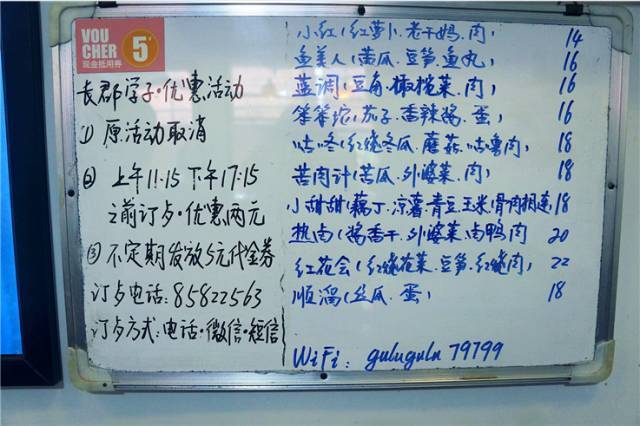 VOU
CHER 5元
现金抵用券
长郡学子·优惠活动
① 原活动取消
② 上午11:15 下午17:15
之前订歺·优惠两元
③ 不定期发放5元代金券
订歺电话:85822563
订歺方式:电话·微信·短信
小红(红萝卜.老干妈.肉) 14
鱼美人(黄瓜.豆笋.鱼丸) 16
蓝调(豆角.橄榄菜.肉) 16
笨笨坨(茄子.香辣酱.蛋) 16
咕咚(红烧冬瓜.蘑菇.咕噜肉) 18
苦肉计(苦瓜.外婆菜.肉) 18
小甜甜(藕丁.凉薯.青豆.玉米.骨肉相连) 18
热卤(酱香干.外婆菜.卤鸭肉) 20
红花会(红烧花菜.豆笋.红烧肉) 22
顺溜(丝瓜.蛋) 18
WiFi: guluguln 79799